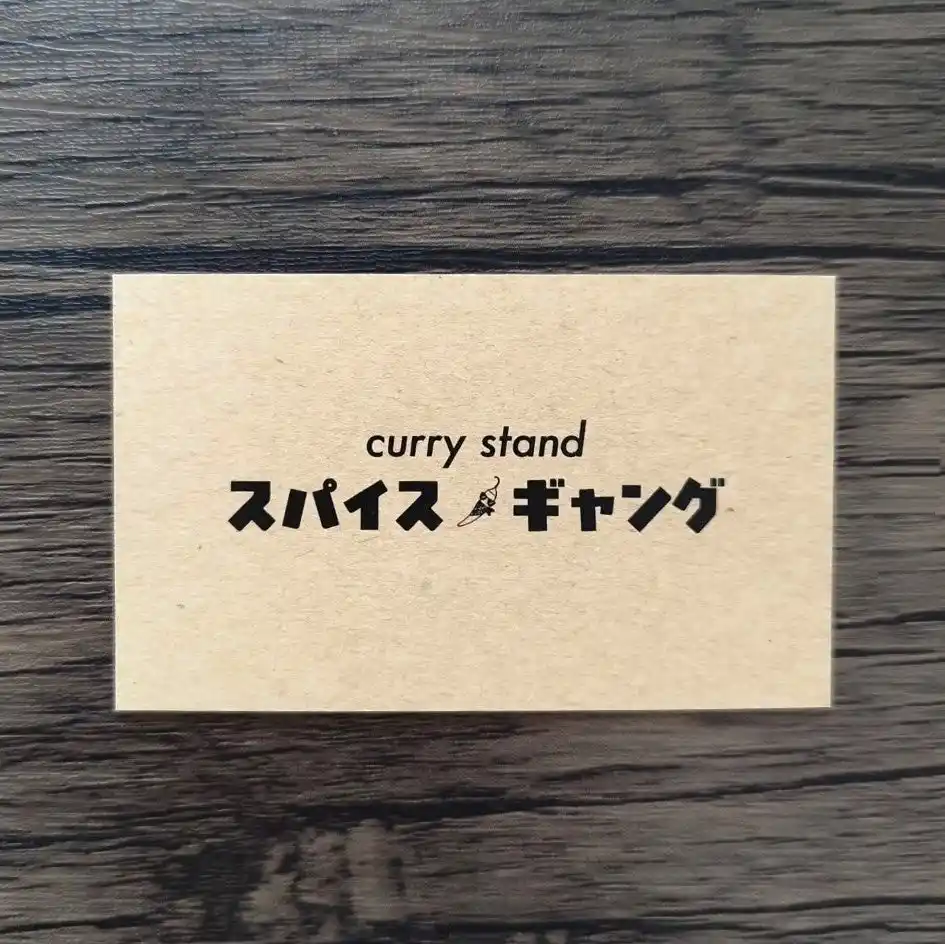 curry stand
スパイスギャング